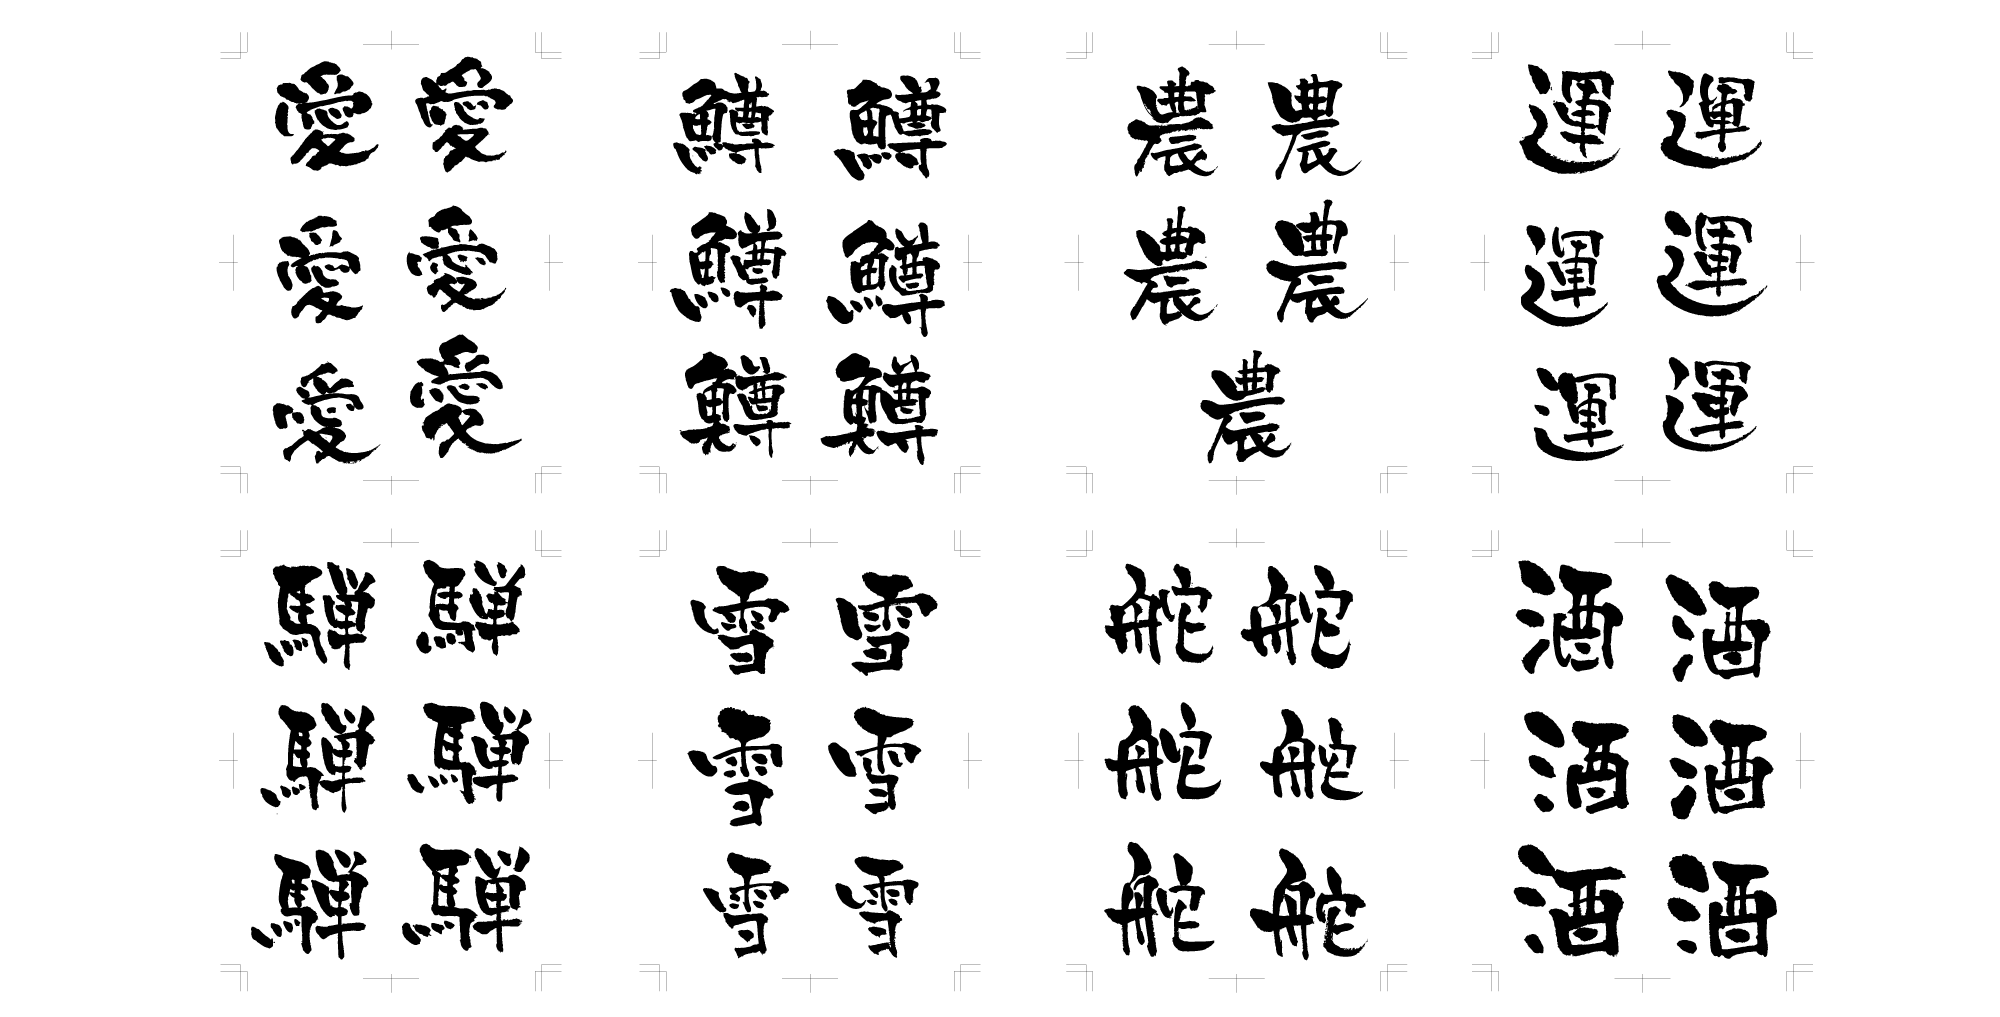 愛 愛
愛 愛
愛 愛
鱒 鱒
鱒 鱒
鱒 鱒
農 農
農 農
農
運 運
運 運
運 運
騨 騨
騨 騨
騨 騨
雪 雪
雪 雪
雪 雪
舵 舵
舵 舵
舵 舵
酒 酒
酒 酒
酒 酒